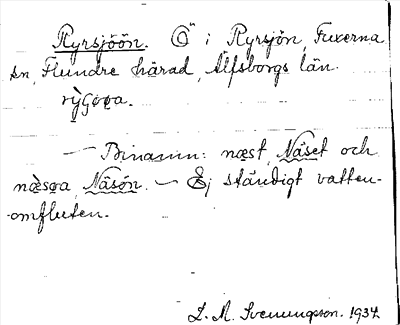 Ryrsjöön. Ö i Ryrsjön, Fuxerna
sn, Flundre härad, Älfsborgs län.
— Binamn: næst, Näset och
Näsön. — Ej ständigt vatten-
omfluten.
L. M. Svenungsson. 1934